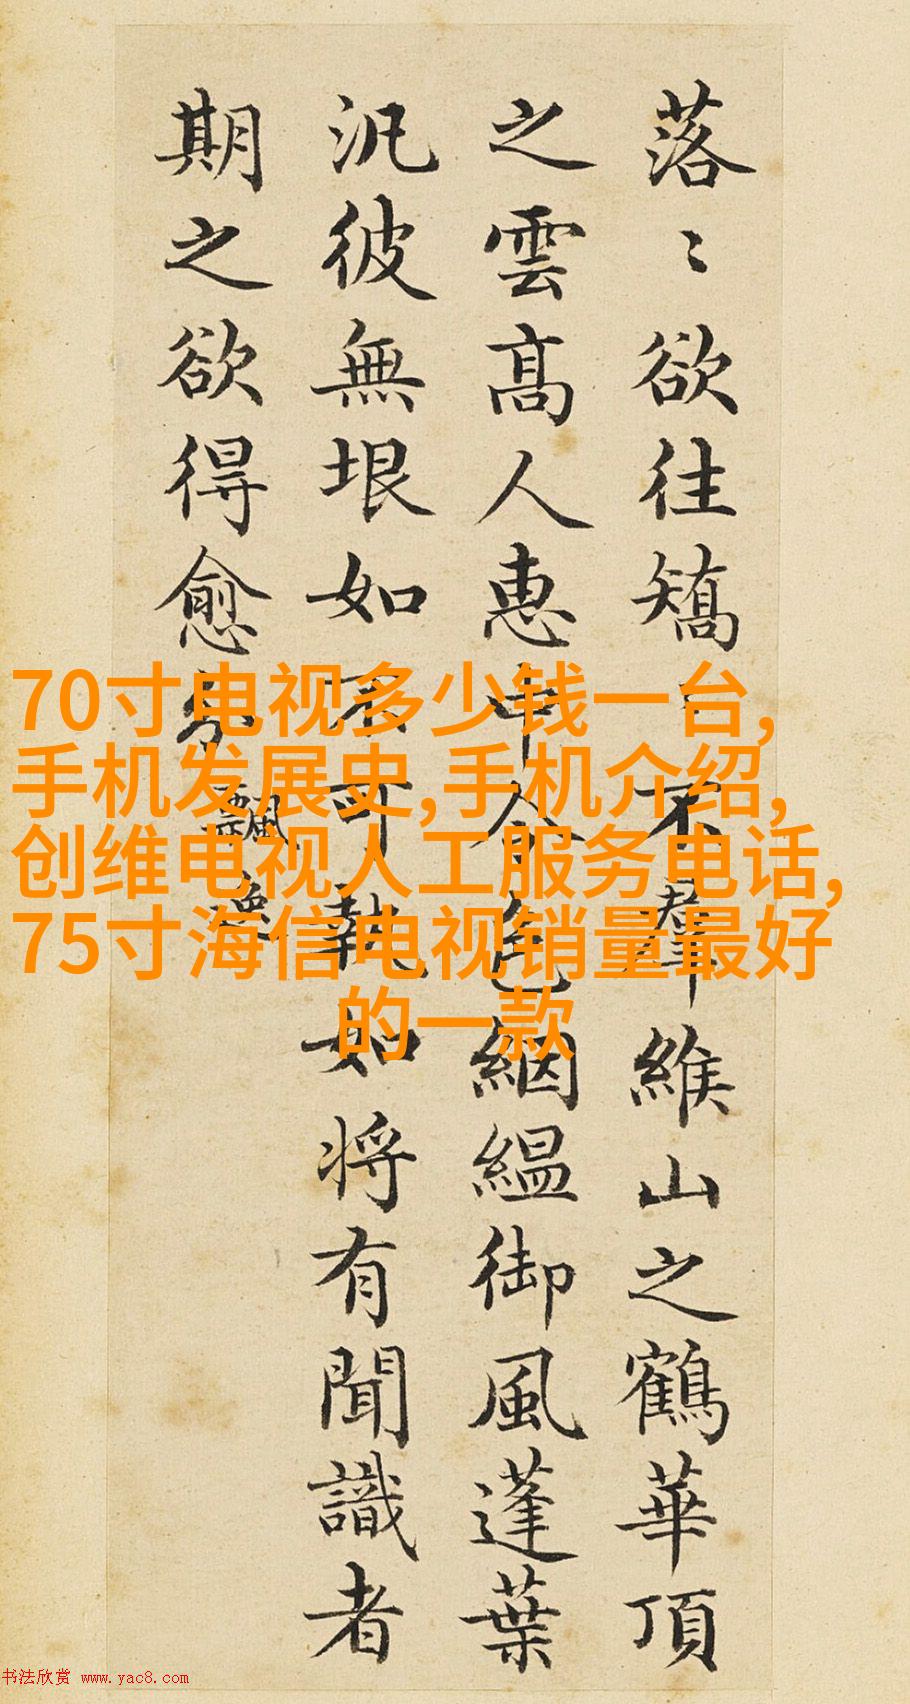 落〻欲往矯〻不羣緱山之鶴華頂
之雲高人惠中令色絪緼御風蓬葉
汎彼無垠如不可執如將有聞識者
期之欲得愈分飄逸
70寸电视多少钱一台,
手机发展史,手机介绍,
创维电视人工服务电话,
75寸海信电视销量最好
的一款
书法欣赏 www.yac8.com